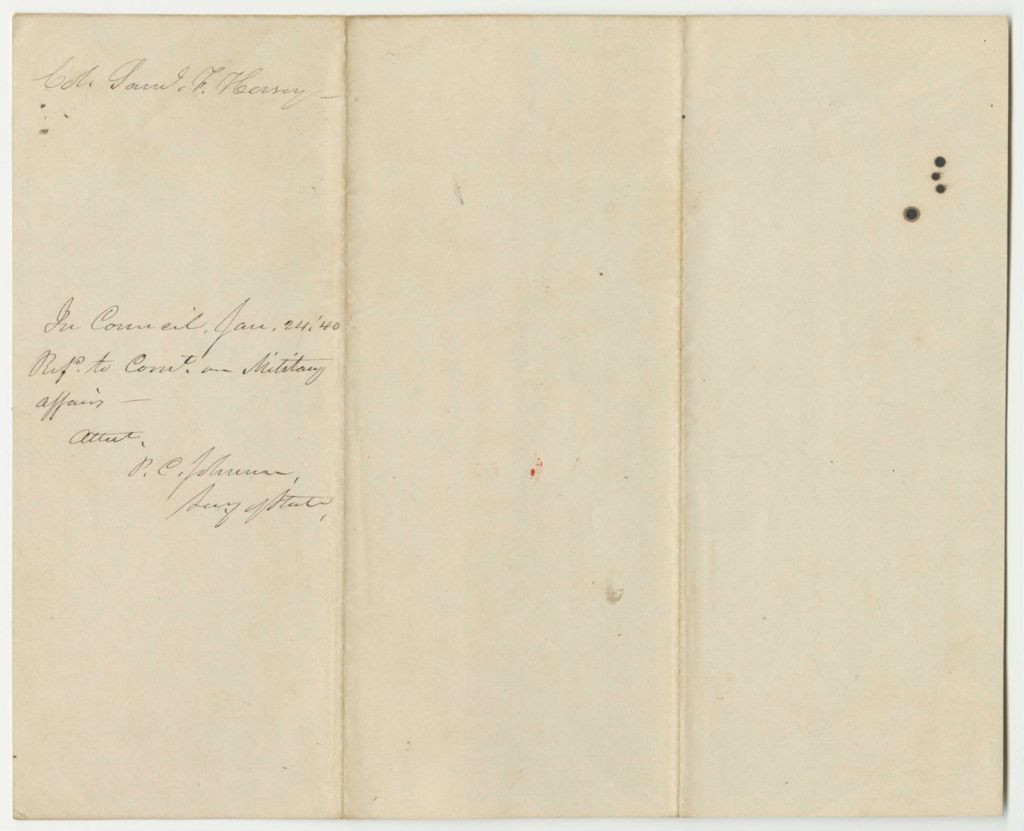 Col. Saml. F. Hersey
In Council, Jan. 24, '40
Refd. to Comt. on Military
affairs —
Attest,
P. C. Johnson,
Secy of State,